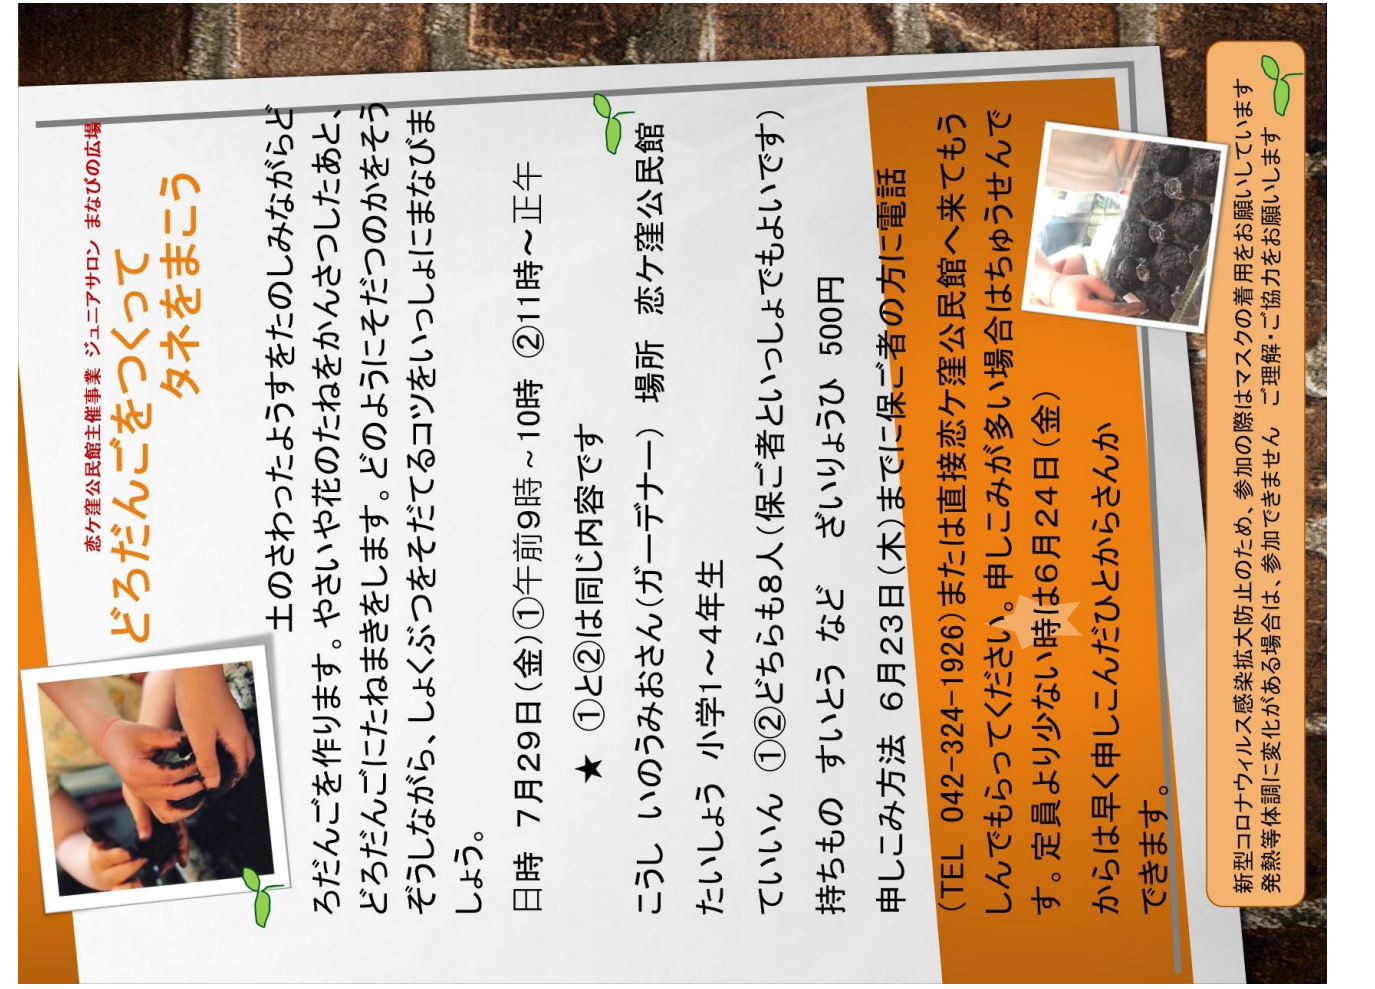 恋ケ窪公民館主催事業 ジュニアサロン まなびの広場
どろだんごをつくって
タネをまこう
土のさわったようすをたのしみながらど
ろだんごを作ります。やさいや花のたねをかんさつしたあと、
どろだんごにたねまきをします。どのようにそだつのかをそう
ぞうしながら、しょくぶつをそだてるコツをいっしょにまなびま
しょう。
日時 7月29日(金)①午前9時~10時 ②11時~正午
★ ①と②は同じ内容です
こうし いのうみおさん(ガーデナー) 場所 恋ケ窪公民館
たいしょう 小学1~4年生
ていいん ①②どちらも8人(保ご者といっしょでもよいです)
持ちもの すいとう など ざいりょうひ 500円
申しこみ方法 6月23日(木)までに保ご者の方に電話
(TEL 042-324-1926)または直接恋ケ窪公民館へ来てもう
しんでもらってください。申しこみが多い場合はちゅうせんで
す。定員より少ない時は6月24日(金)
からは早く申しこんだひとからさんか
できます。
新型コロナウィルス感染拡大防止のため、参加の際はマスクの着用をお願いしています
発熱等体調に変化がある場合は、参加できません ご理解・ご協力をお願いします